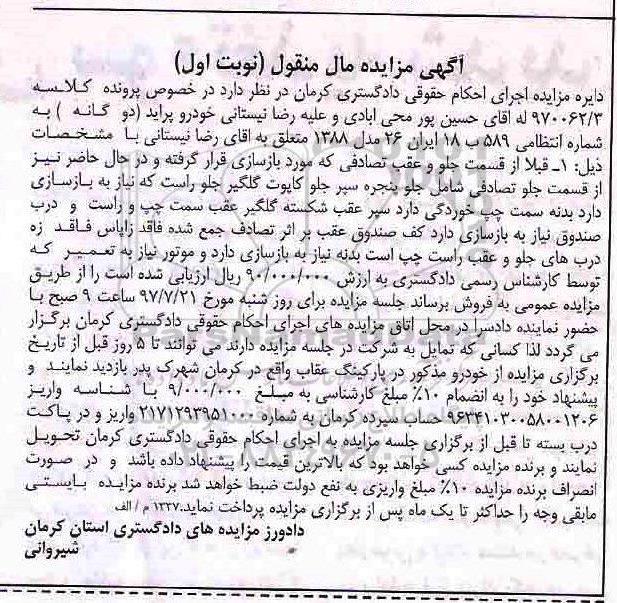 آگهی مزایده مال منقول (نوبت اول)
دایره مزایده اجرای احکام حقوقی دادگستری کرمان در نظر دارد در خصوص پرونده کلاسه
۹۷۰۰۶۲/۳ له اقای حسین پور محی ابادی و علیه رضا نیستانی خودرو پراید (دو گانه ) به
شماره انتظامی ۵۸۹ ب ۱۸ ایران ۲۶ مدل ۱۳۸۸ متعلق به اقای رضا نیستانی با مشخصات
ذیل: ۱ـ قبلا از قسمت جلو و عقب تصادفی که مورد بازسازی قرار گرفته و در حال حاضر نیز
از قسمت جلو تصادفی شامل جلو پنجره سپر جلو کاپوت گلگیر جلو راست که نیاز به بازسازی
دارد بدنه سمت چپ خوردگی دارد سپر عقب شکسته گلگیر عقب سمت چپ و راست و درب
صندوق نیاز به بازسازی دارد کف صندوق عقب بر اثر تصادف جمع شده فاقد زاپاس فاقد زه
درب های جلو و عقب راست چپ است بدنه نیاز به بازسازی دارد و موتور نیاز به تعمیر که
توسط کارشناس رسمی دادگستری به ارزش ۹۰/۰۰۰/۰۰۰ ریال ارزیابی شده است را از طریق
مزایده عمومی به فروش برساند جلسه مزایده برای روز شنبه مورخ ۹۷/۷/۲۱ ساعت ۹ صبح با
حضور نماینده دادسرا در محل اتاق مزایده های اجرای احکام حقوقی دادگستری کرمان برگزار
می گردد لذا کسانی که تمایل به شرکت در جلسه مزایده دارند می توانند تا ۵ روز قبل از تاریخ
برگزاری مزایده از خودرو مذکور در پارکینگ عقاب واقع در کرمان شهرک پدر بازدید نمایند و
پیشنهاد خود را به انضمام ۱۰٪ مبلغ کارشناسی به مبلغ ۹/۰۰۰/۰۰۰ با شناسه واریز
۹۶۳۴۱۰۳۰۰۵۸۰۰۱۲۰۶ حساب سپرده کرمان به شماره ۲۱۷۱۲۹۳۹۵۱۰۰۰ واریز و در پاکت
درب بسته تا قبل از برگزاری جلسه مزایده به اجرای احکام حقوقی دادگستری کرمان تحویل
نمایند و برنده مزایده کسی خواهد بود که بالاترین قیمت را پیشنهاد داده باشد و در صورت
انصراف برنده مزایده ۱۰٪ مبلغ واریزی به نفع دولت ضبط خواهد شد برنده مزایده بایستی
مابقی وجه را حداکثر تا یک ماه پس از برگزاری مزایده پرداخت نماید.۱۳۳۷ م / الف
دادورز مزایده های دادگستری استان کرمان
شیروانی